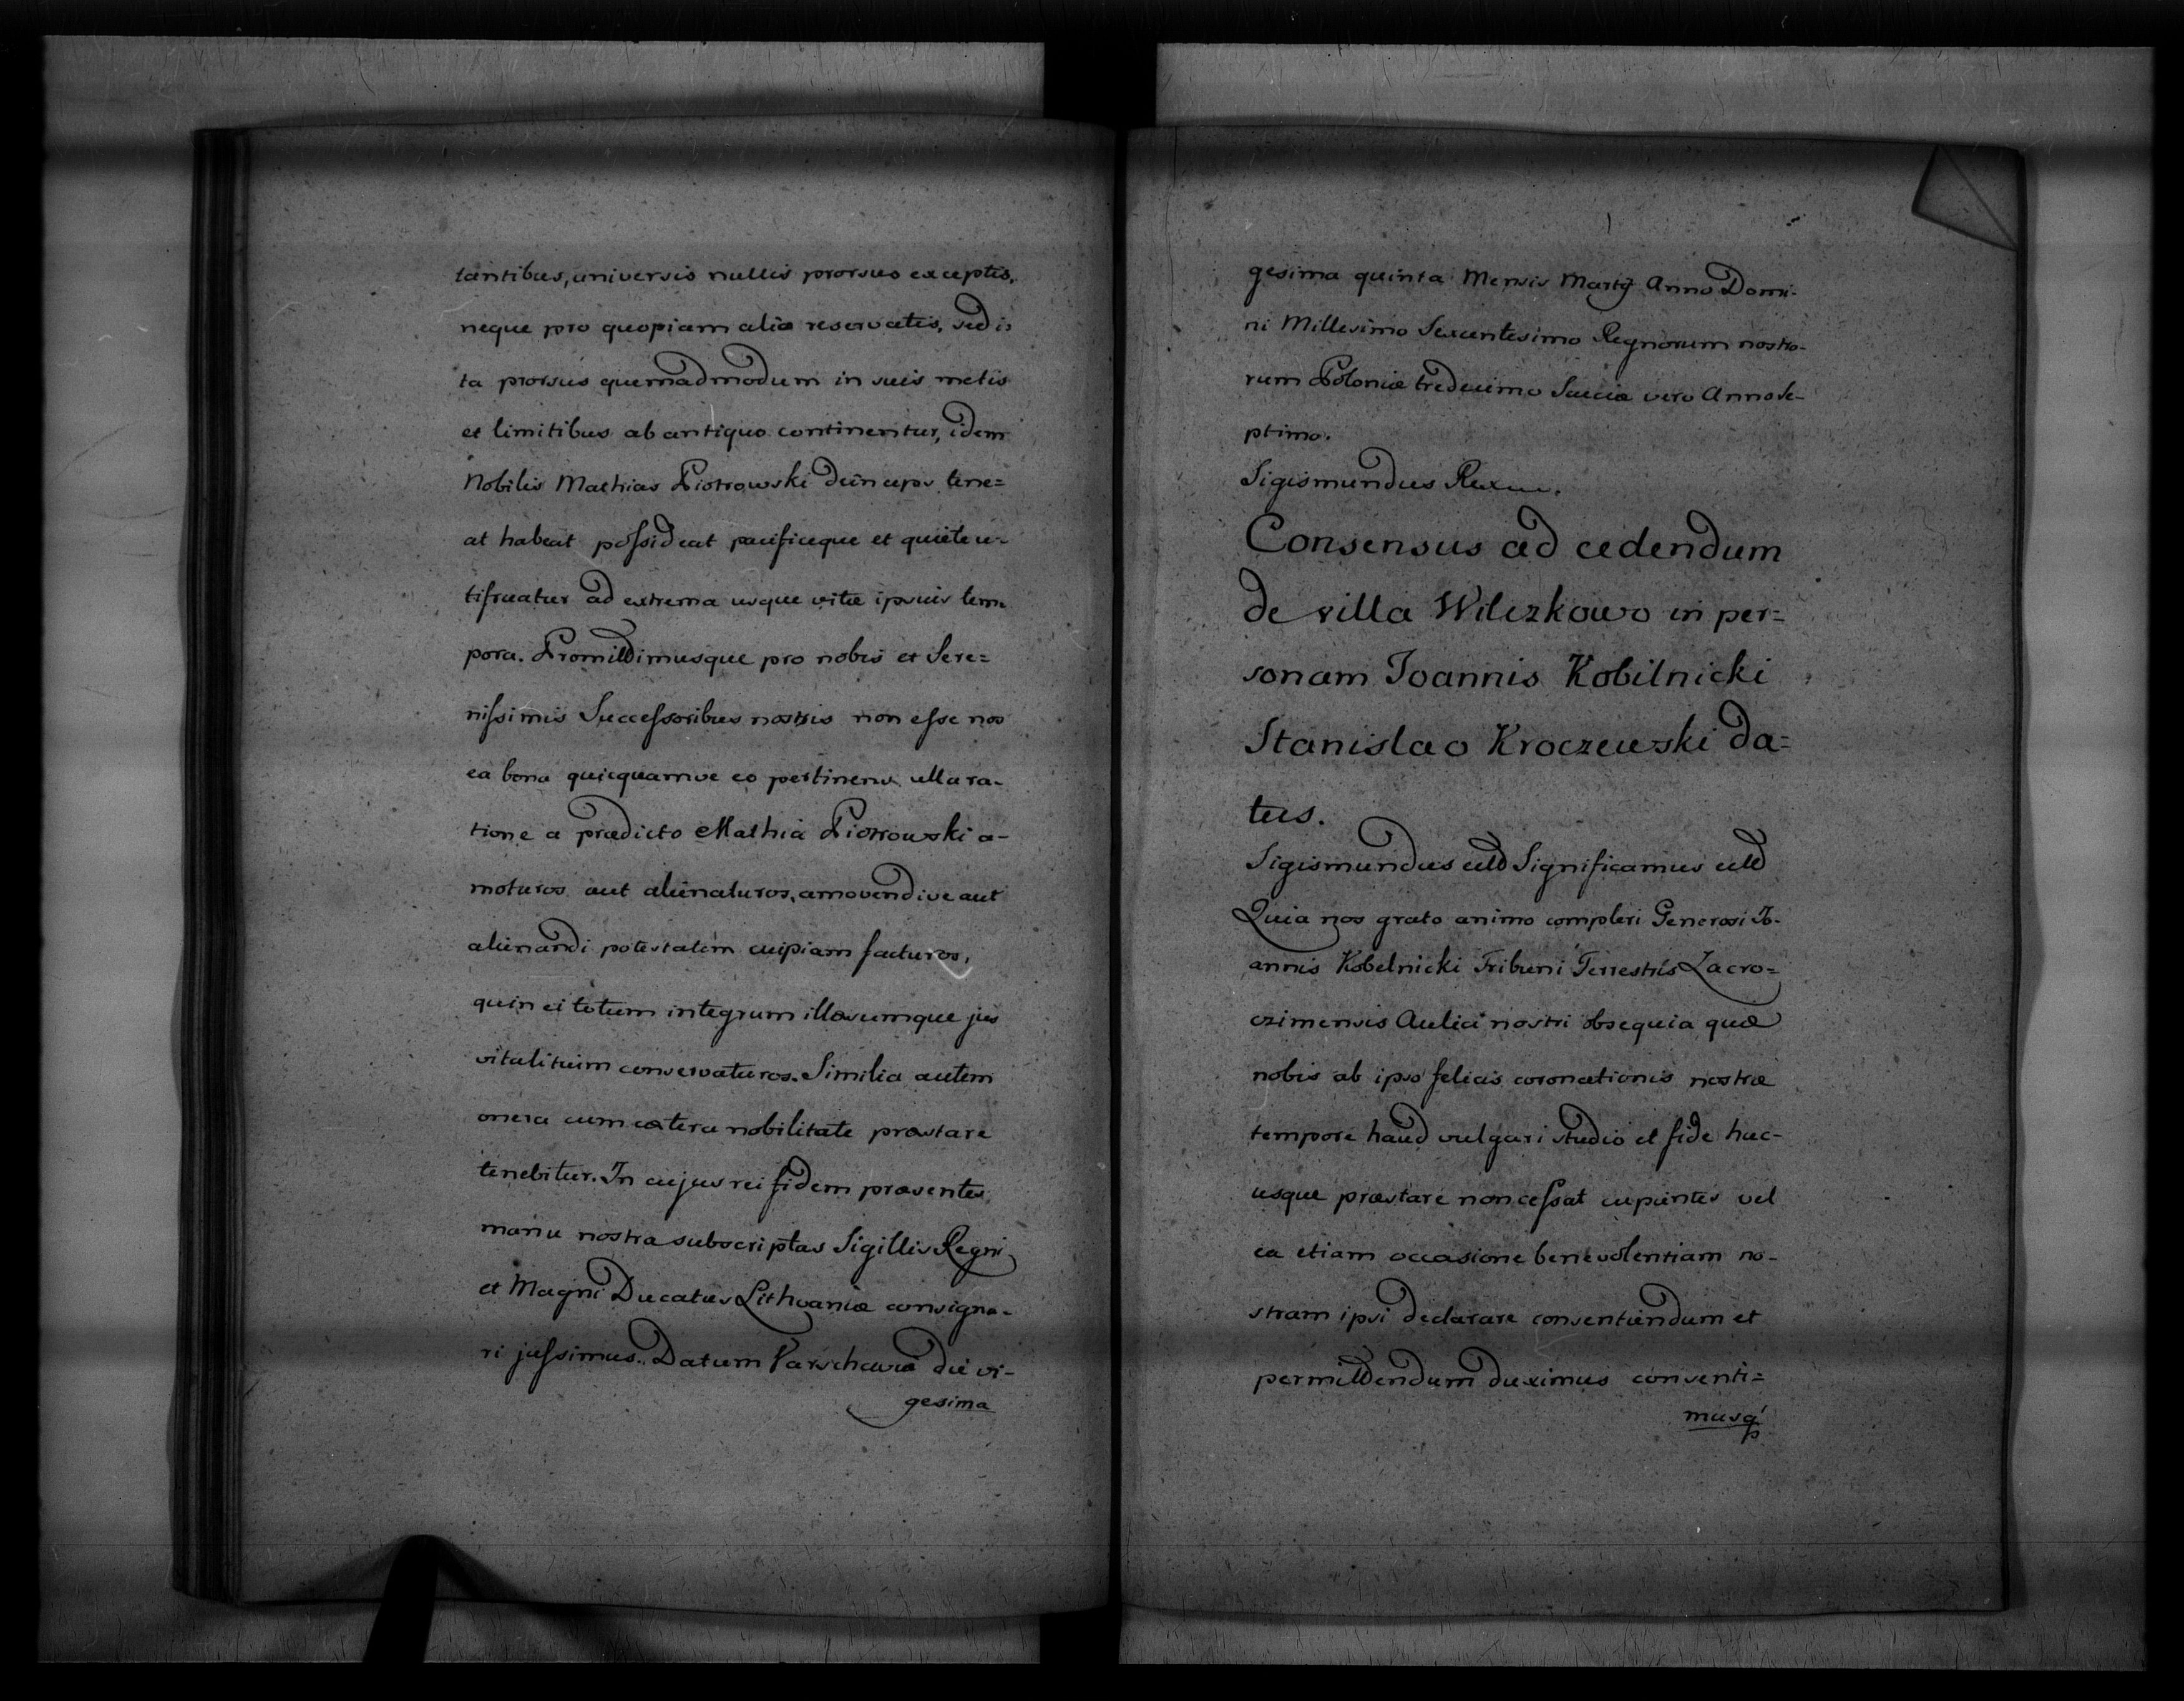 tantibus, universis nullis prorsus exceptis,
neque pro quopiam alio reservatis, sed i-
ta prorsus quemadmodum in suis metis
et limitibus ab antiquo continentur, idem
Nobilis Mathias Piotrowski deinceps tene=
at habeat possideat pacificeque et quiete u-
tifruatur ad extrema usque vitæ ipsius tem
pora. Promittimusque pro nobis et Sere=
nissimis Successoribus nostris non esse nos
ea bona quicquamve eo pertinens ulla ra-
tione a prædicto Mathia Piotrowski a-
moturos aut alienaturos, amovendive aut
alienandi potestatem cuipiam facturos,
quin ei totum integrum illæsumque jus
vitalitium conservaturos. Similia autem
onera cum cætera nobilitate præstare
tenebitur. In cujus rei fidem præsentes
manu nostra subscriptas Sigillis Regni
et Magni Ducatus Lithvaniæ consigna-
ri jussimus. Datum Varschaviæ die vi-
gesima
gesima quinta Mensis Martij Anno Domi-
ni Millesimo Sexcentesimo Regnorum nostro-
rum Poloniæ tredecimo Sueciæ vero Anno se-
ptimo.
Sigismundus Rex
Consensus ad cedendum
de villa Wilczkowo in per=
sonam Joannis Kobilnicki
Stanislao Kroczewski da=
tus.
Sigismundus etc Significamus etc
Quia nos grato animo compleri Generosi Jo-
annis Kobelnicki Tribuni Terrestris Zacro=
czimensis Aulici nostri obsequia quæ
nobis ab ipso felicis coronationis nostræ
tempore haud vulgari studio et fide huc-
usque præstare non cessat cupientes vel
ea etiam occasione benevolentiam no-
stram ipsi declarare consentiendum et
permittendum duximus consenti=
musq